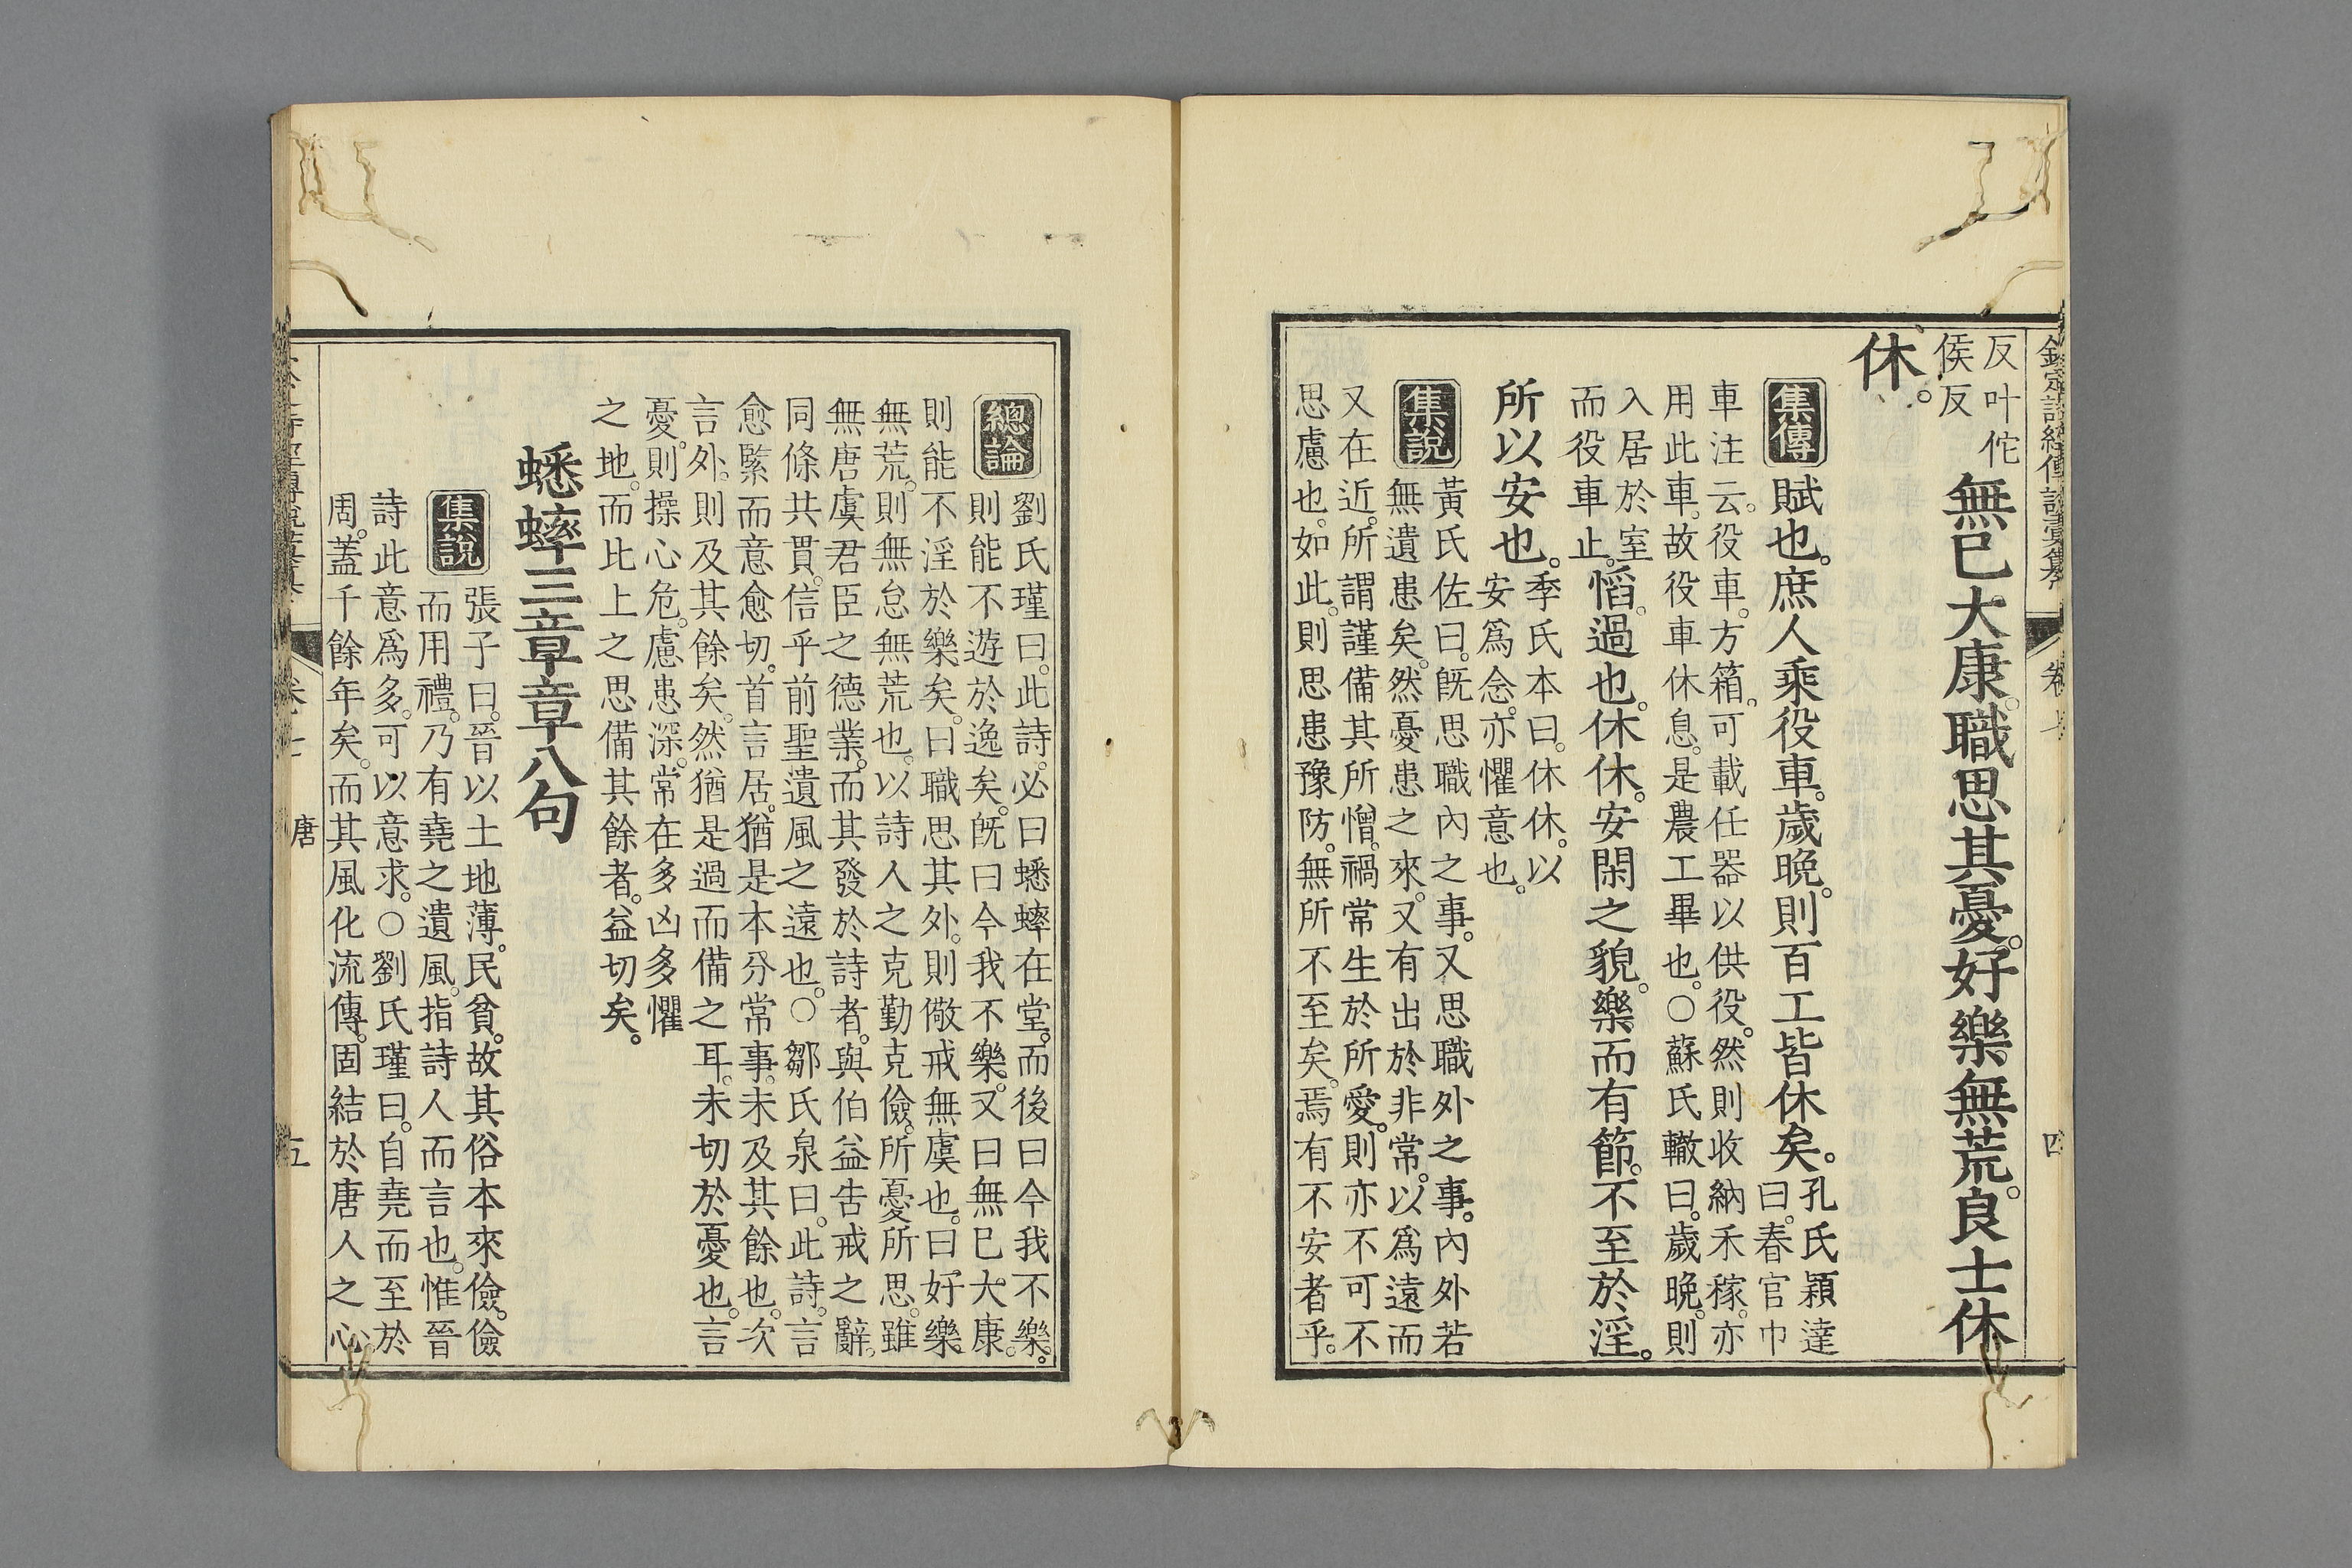 反叶佗
侯反
無已大康。職思其憂。好樂無荒。良士休
休。
集傳
賦也。庶人乘役車。歲晚。則百工皆休矣。
孔氏穎達
曰。春官巾
車注云。役車。方箱。可載任器以供役。然則收納禾稼。亦
用此車。故役車休息。是農工畢也。○蘇氏轍曰。歲晚。則
入居於室。
而役車止。
慆。過也。休休。安閑之貌。樂而有節。不至於淫。
所以安也。
季氏本曰。休休。以
安爲念。亦懼意也。
集說
黃氏佐曰。旣思職內之事。又思職外之事。內外若
無遺患矣。然憂患之來。又有出於非常。以爲遠而
又在近。所謂謹備其所憎。禍常生於所愛。則亦不可不
思慮也。如此。則思患豫防。無所不至矣。焉有不安者乎。
卷七
四
總論
劉氏瑾曰。此詩。必曰蟋蟀在堂。而後曰今我不樂。
則能不遊於逸矣。旣曰今我不樂。又曰無已大康。
則能不淫於樂矣。曰職思其外。則儆戒無虞也。曰好樂
無荒。則無怠無荒也。以詩人之克勤克儉。所憂所思。雖
無唐虞君臣之德業。而其發於詩者。與伯益告戒之辭。
同條共貫。信乎前聖遺風之遠也。○鄒氏泉曰。此詩。言
愈緊而意愈切。首言居。猶是本分常事。未及其餘也。次
言外。則及其餘矣。然猶是過而備之耳。未切於憂也。言
憂。則操心危。慮患深。常在多凶多懼
之地。而比上之思備其餘者。益切矣。
蟋蟀三章章八句
集說
張子曰。晉以土地薄。民貧。故其俗本來儉。儉
而用禮。乃有堯之遺風。指詩人而言也。惟晉
詩此意爲多。可以意求。○劉氏瑾曰。自堯而至於
周。蓋千餘年矣。而其風化流傳。固結於唐人之心。
唐
五